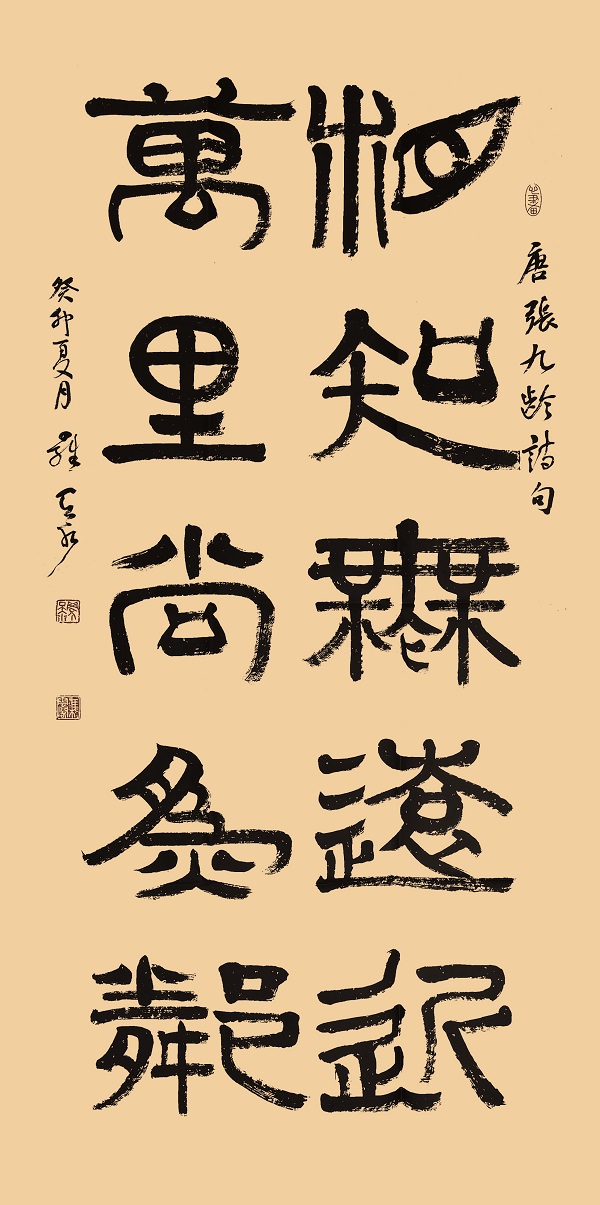 唐張九齡詩句
相知無遠近
萬里尚為鄰
癸卯夏月